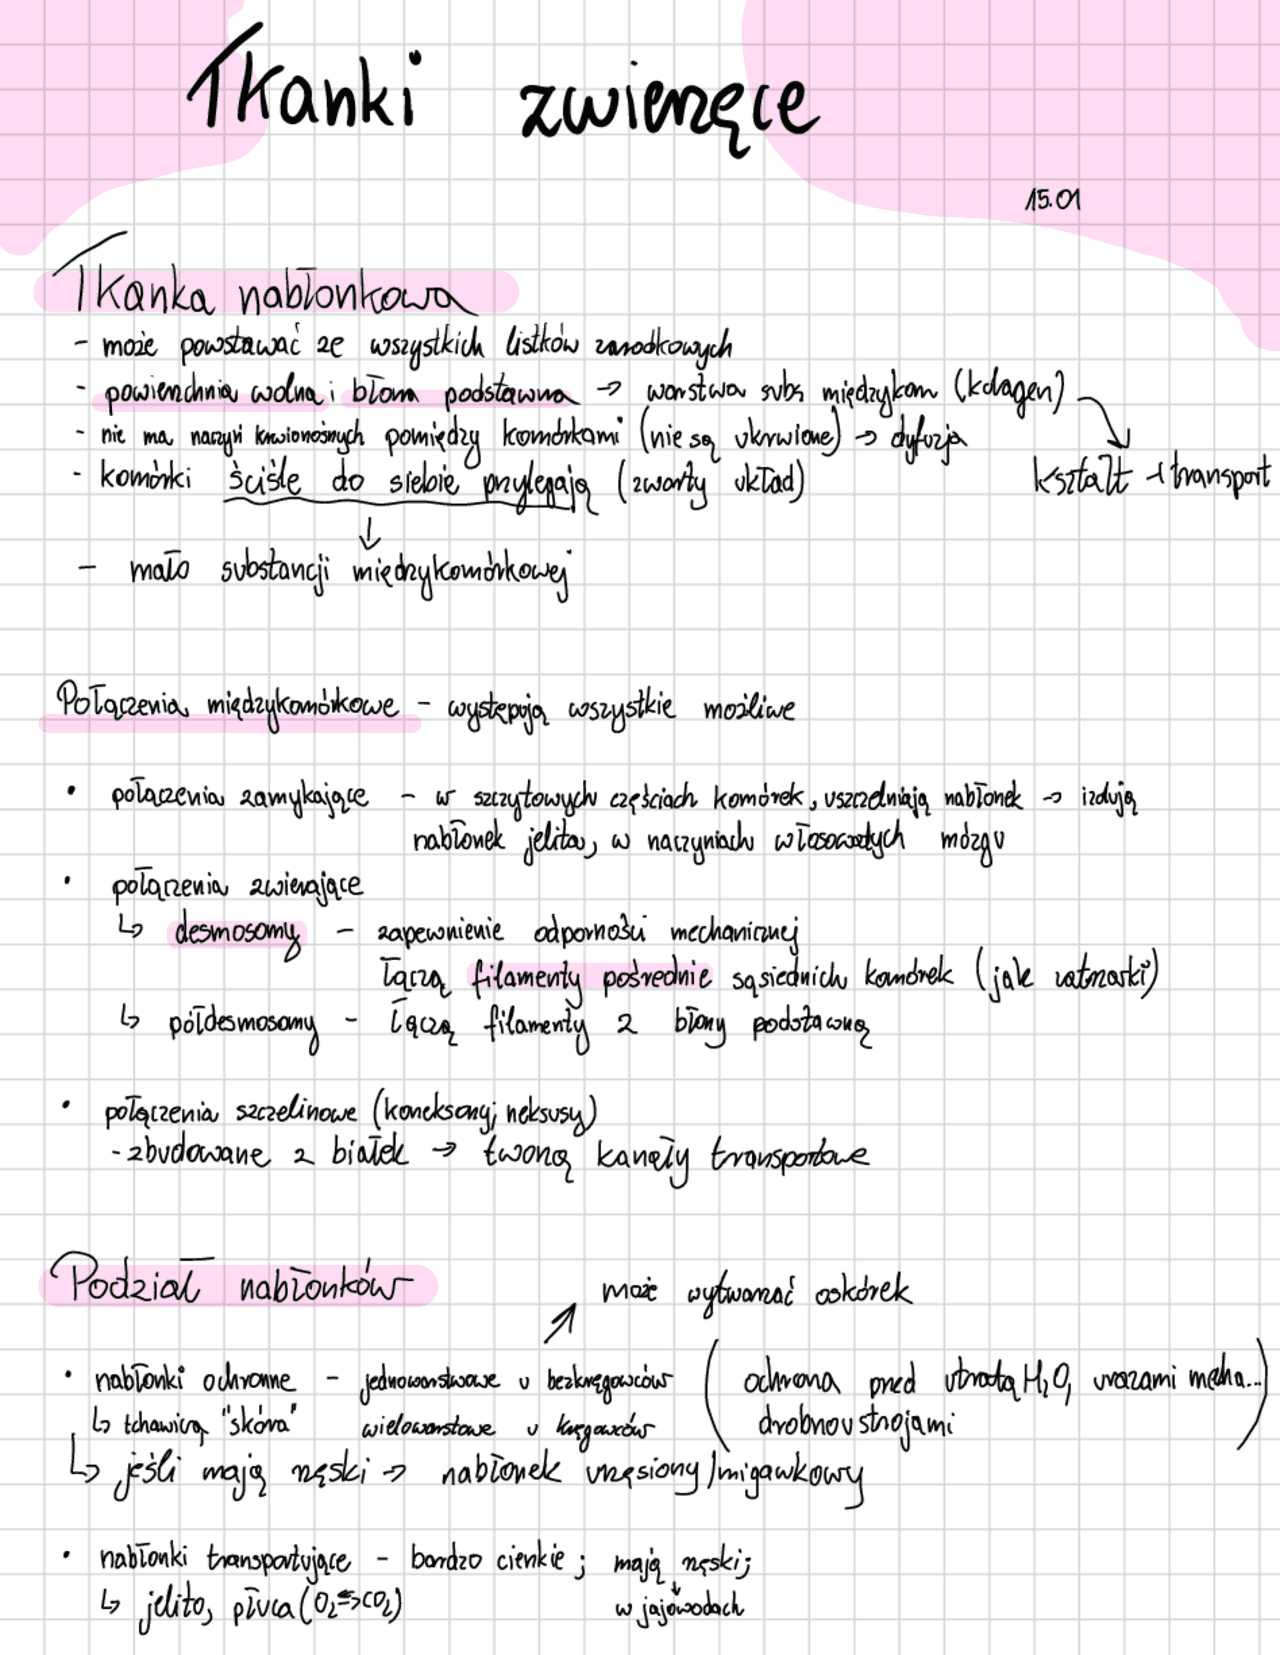 Tkanki zwierzęce
15.01
Tkanka nabłonkowa
- może powstawać ze wszystkich listków zarodkowych
- powierzchnia wolna i błona podstawna → warstwa subs. międzykom (kolagen)
- nie ma naczyń krwionośnych pomiędzy komórkami (nie są ukrwione) → dyfuzja
kształt + transport
- komórki ściśle do siebie przylegają (zwarty układ)
↓
- mało substancji międzykomórkowej
Połączenia międzykomórkowe - występują wszystkie możliwe
• połączenia zamykające - w szczytowych częściach komórek, uszczelniają nabłonek → izolują
nabłonek jelita, w naczyniach włosowatych mózgu
• połączenia zwierające
↳ desmosomy - zapewnienie odporności mechanicznej
łączą filamenty pośrednie sąsiednich komórek (jak zatrzaski)
↳ półdesmosomy - łączą filamenty z błony podstawną
• połączenia szczelinowe (koneksony; neksusy)
- zbudowane z białek → tworzą kanały transportowe
Podział nabłonków
może wytwarzać oskórek
• nabłonki ochronne - jednowarstwowe u bezkręgowców (ochrona przed utratą H₂O, urazami mecha...
↳ tchawica, "skóra" wielowarstowe u kręgowców drobnoustrojami)
↳ jeśli mają rzęski → nabłonek urzęsiony/migawkowy
• nabłonki transportujące - bardzo cienkie; mają rzęski;
↳ jelito, płuca (O₂ ⇔ CO₂) w jajowodach